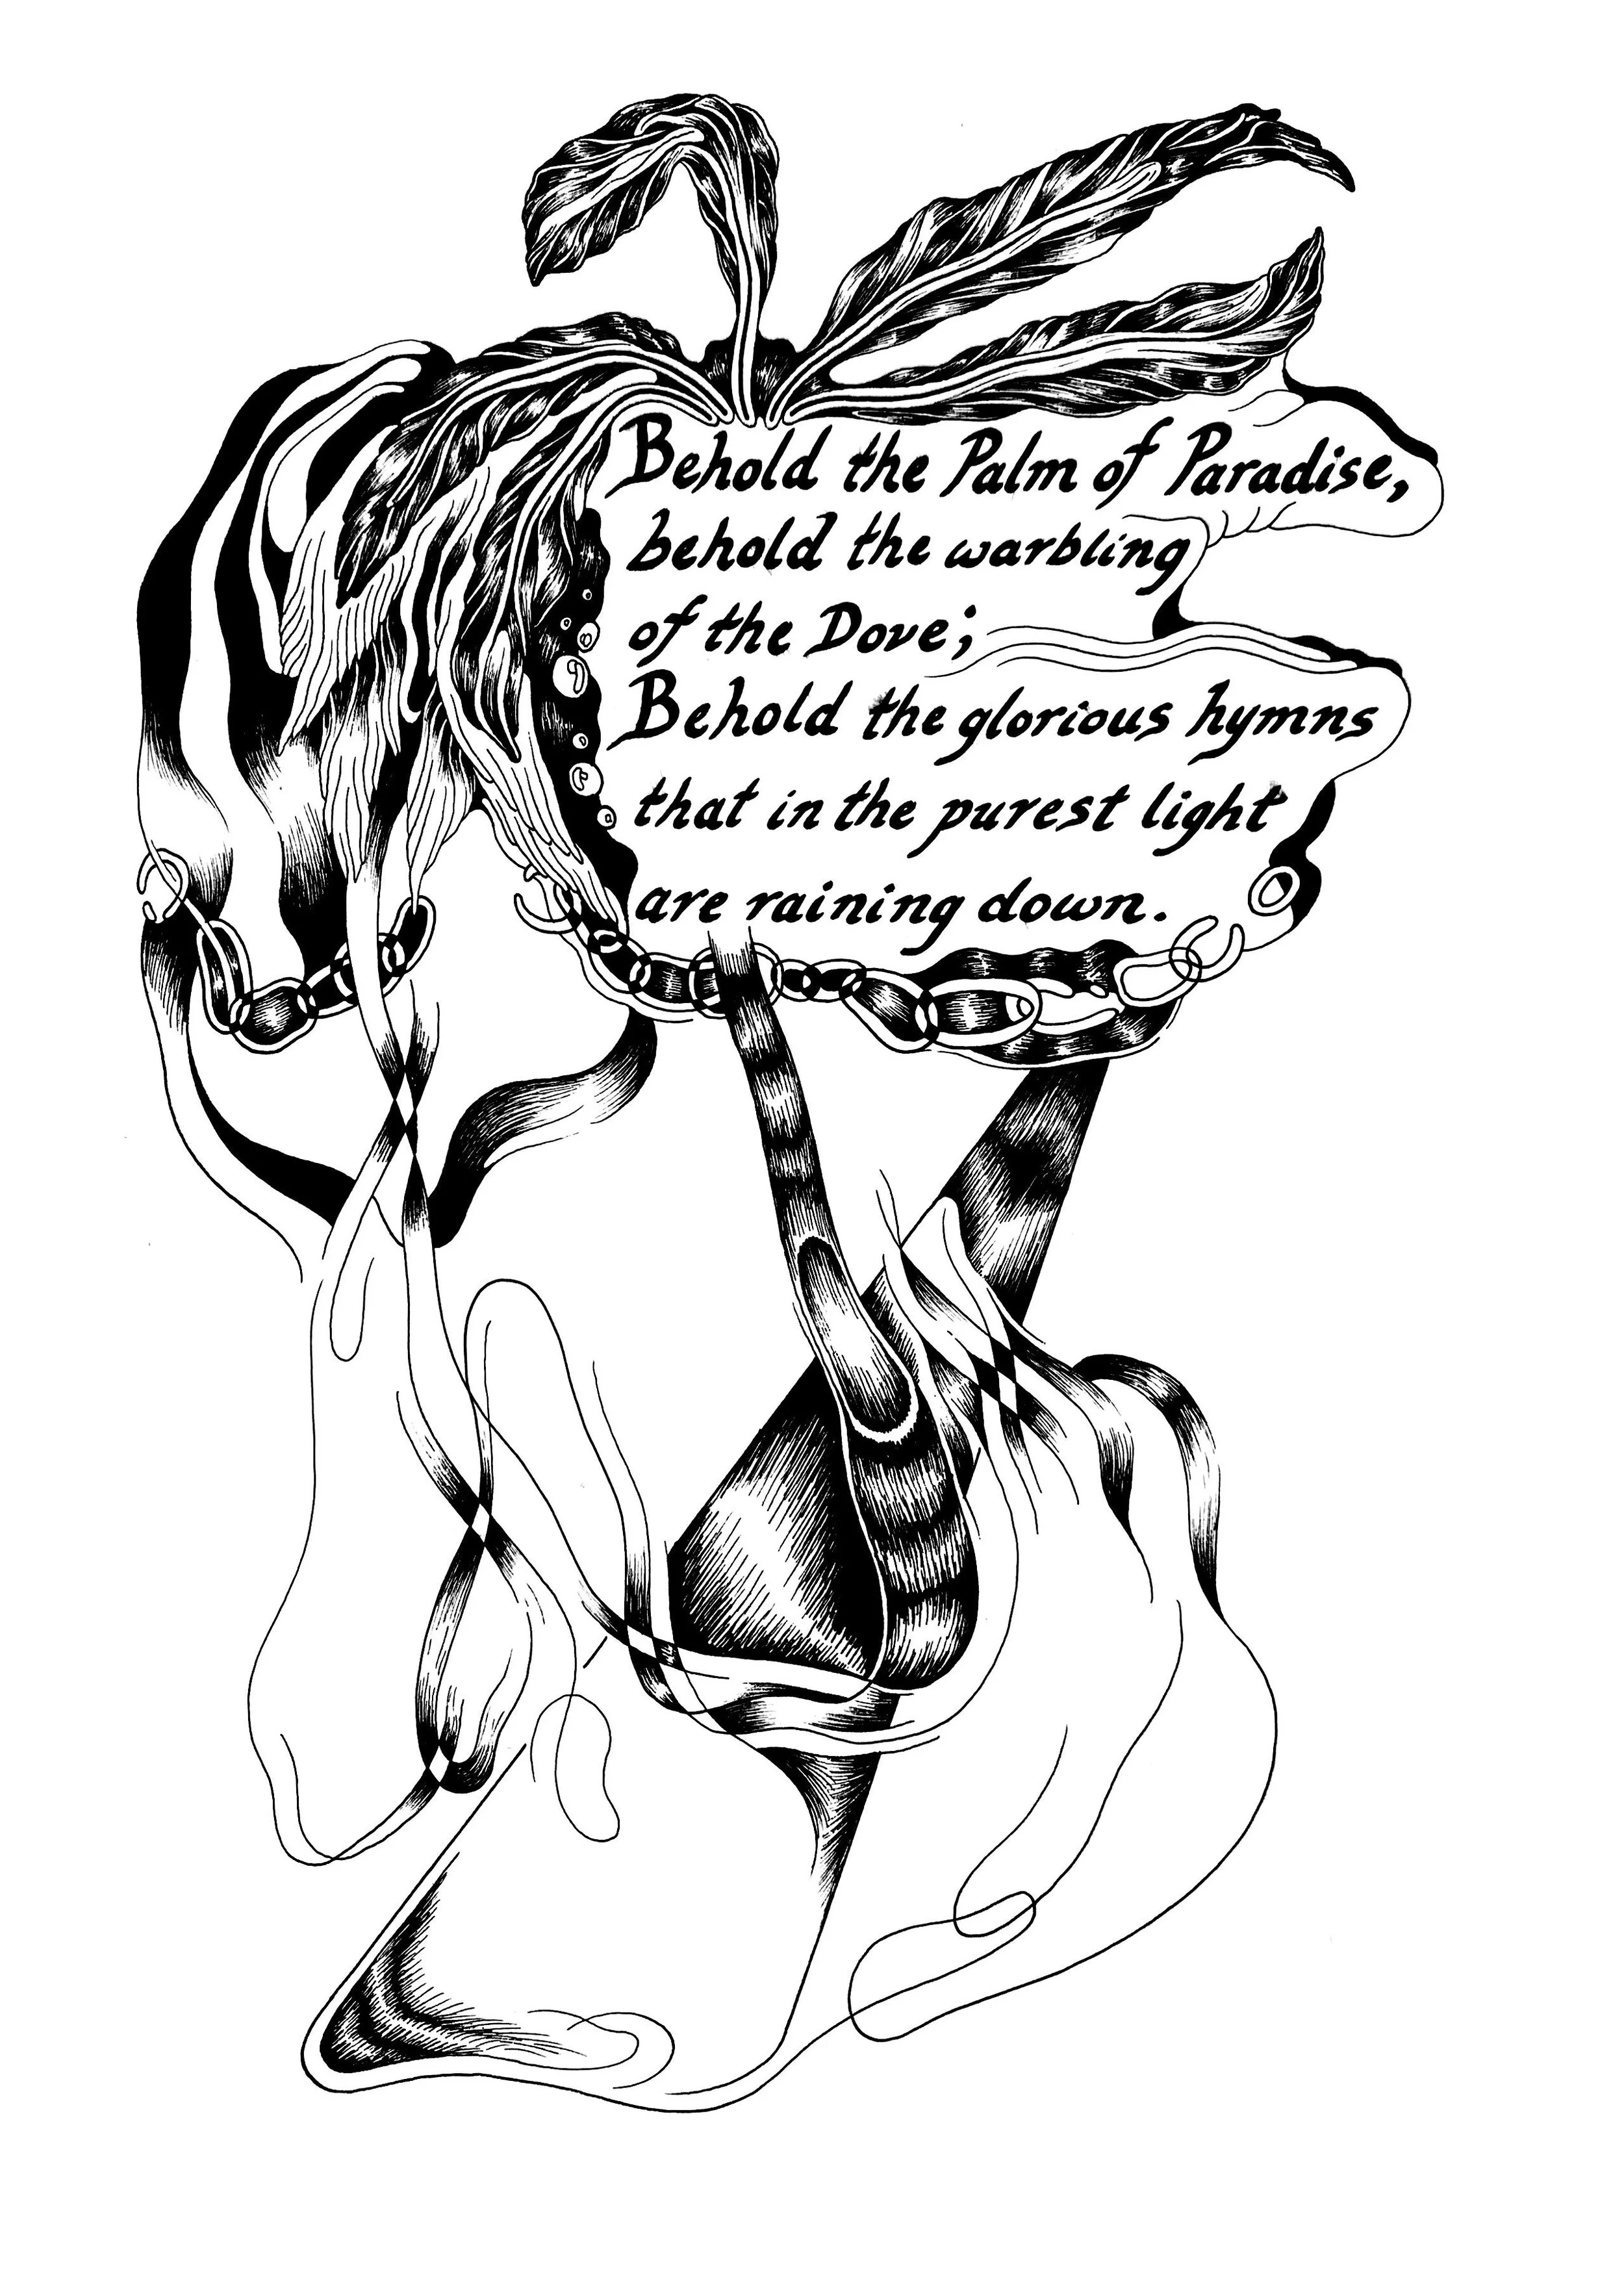 Behold the Palm of Paradise,
behold the warbling
of the Dove;
Behold the glorious hymns
that in the purest light
are raining down.